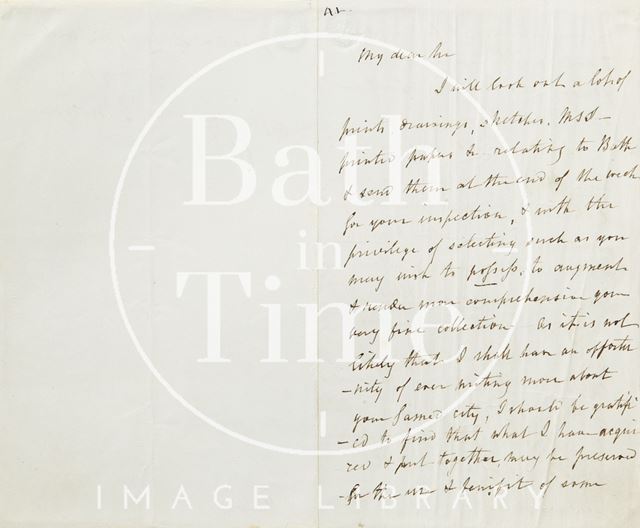 My dear Sir
I will look out a lot of
prints, drawings, sketches, MSS -
printed papers &c relating to Bath
& send them at the end of the week
for your inspection, & with the
privilege of selecting such as you
may wish to possess, to augment
& render more comprehensive your
very fine collection. As it is not
likely that I shall have an opportu
-nity of ever writing more about
your famed city, I should be gratifi
-ed to find that what I have acqui
red & put together, may be preserved
for the use & benefit of some
Bath
in
Time
IMAGE LIBRARY